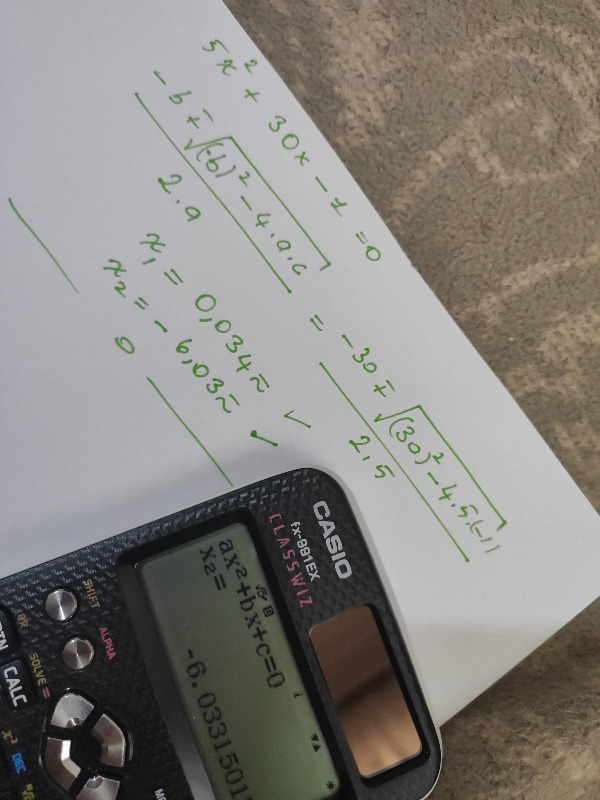 5x² + 30x - 1 = 0
-b ∓ √(-b)² - 4.a.c / 2.a = -30 ∓ √(30)² - 4.5.(-1) / 2.5
x₁ = 0,034~ ✓
x₂ = -6,03~ ✓
0
CASIO
fx-991EX
CLASSWIZ
ax²+bx+c=0
x₂=
-6.0331501
SHIFT
ALPHA
SOLVE =
CALC